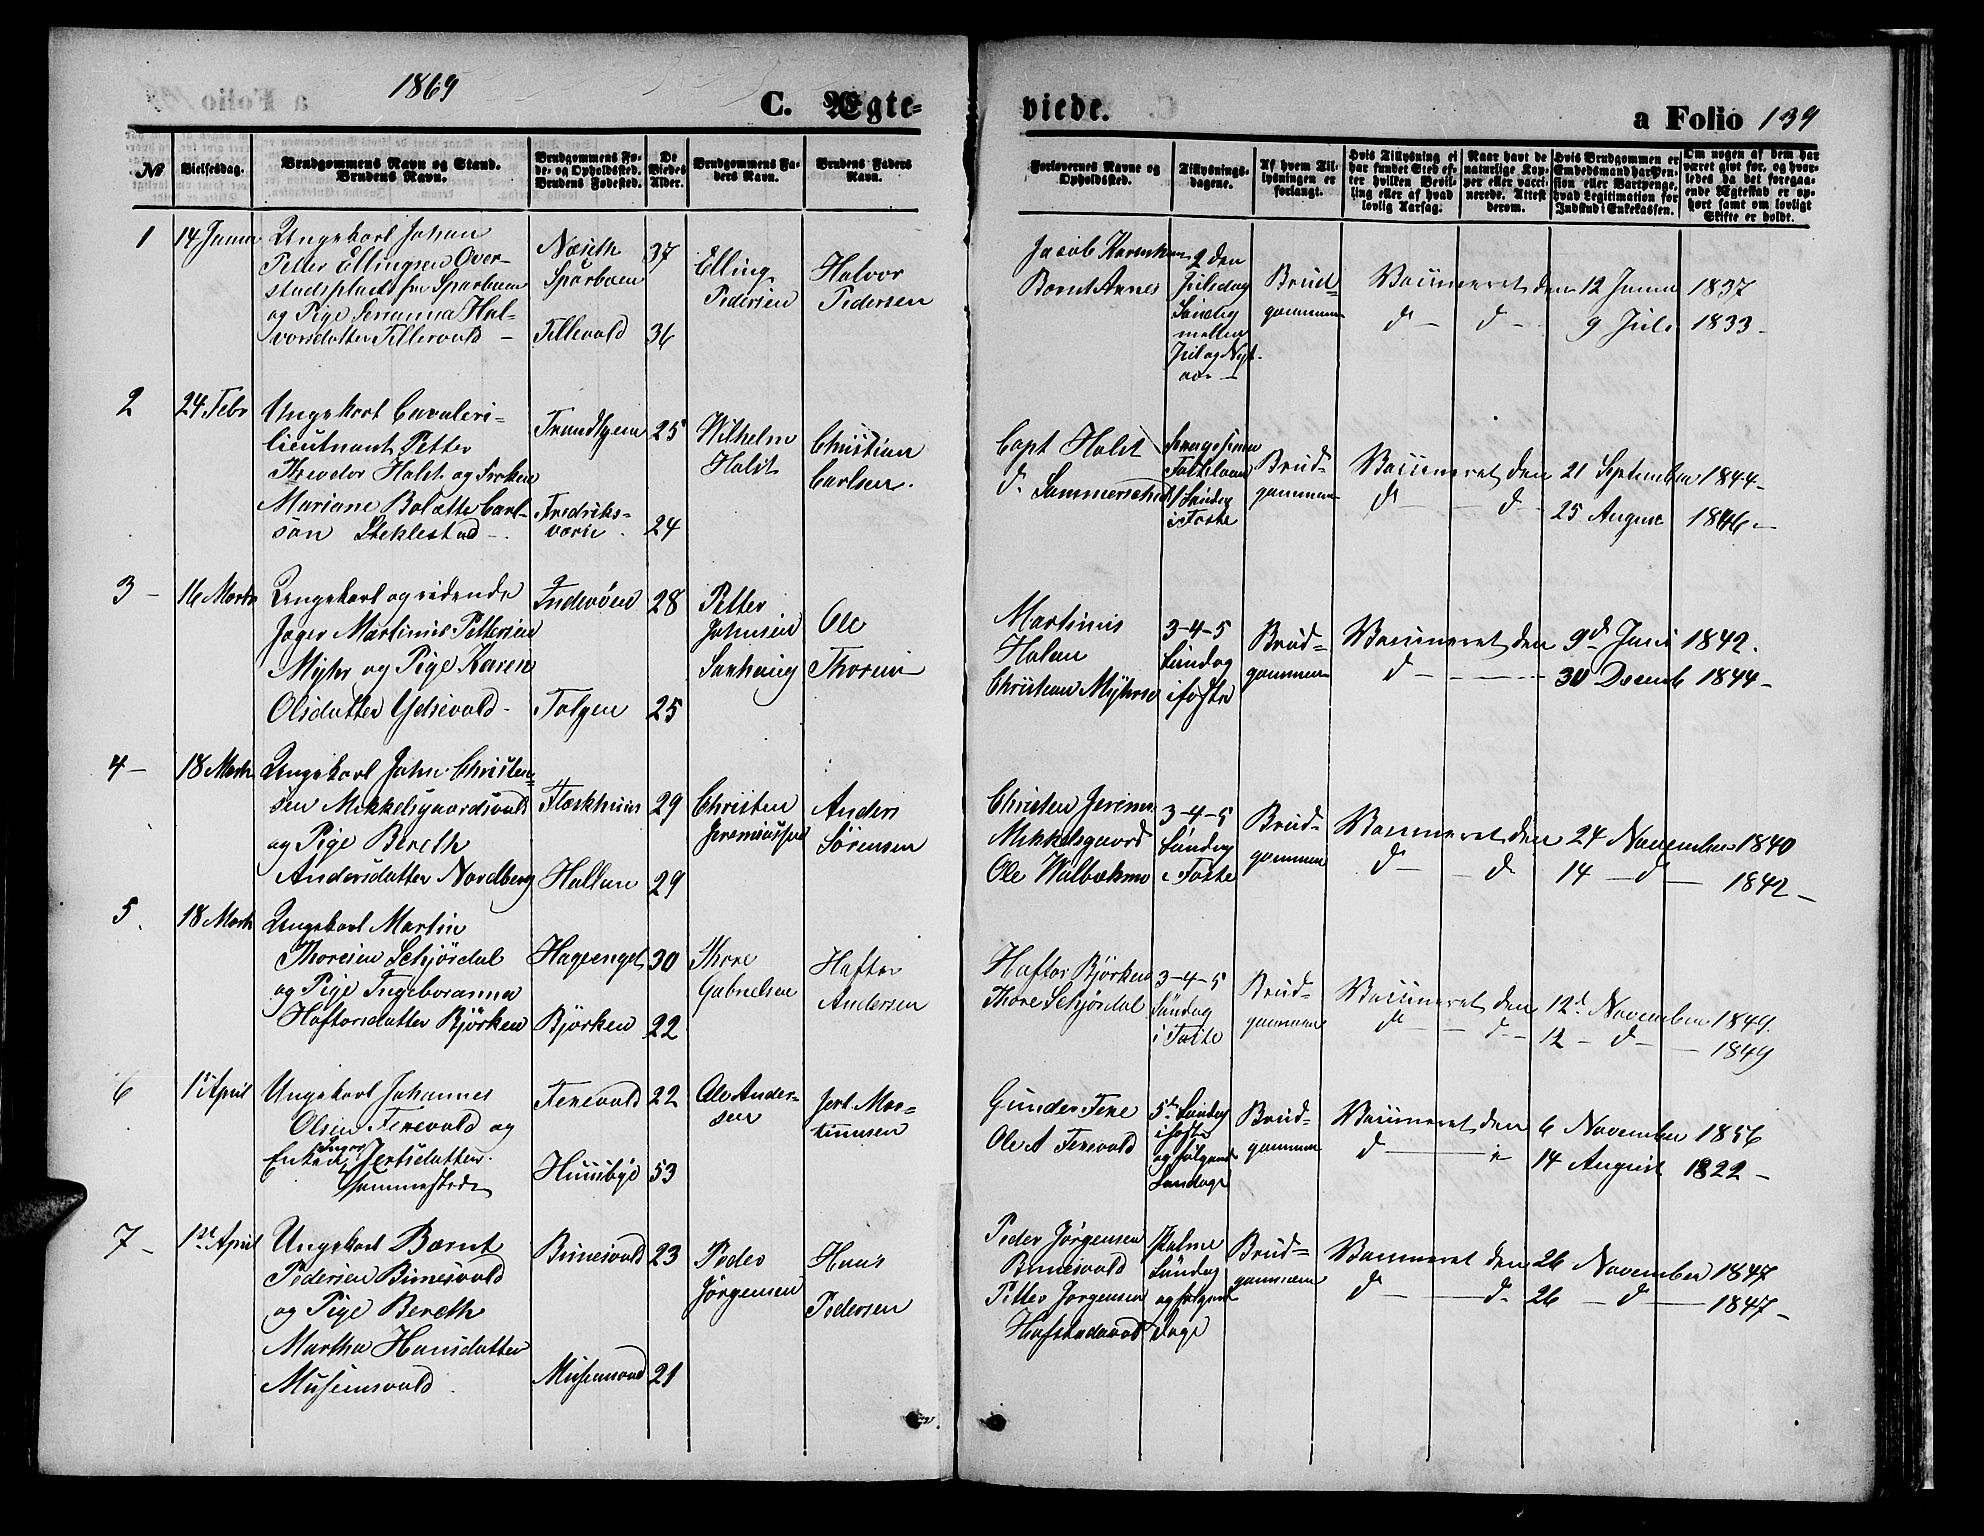 1869
C. Ægte-
viede.
a Folio 139
No
Vielsesdag.
Brudgommens Navn og Stand.
Brudens Navn.
Brudgommens Fø-
de- og Opholdssted.
Brudens Fødested.
De
Viedes
Alder.
Brudgommens Fa-
ders Navn.
Brudens Faders
Navn.
Forlovernes Navne og
Opholdssted.
Tillysnings-
dagene.
Af hvem Til-
lysningen er
forlangt.
Hvis Tillysning ei
har fundet Sted ef-
ter hvilken Bevil-
ling eller af hvad
lovlig Aarsag.
Naar havt de
naturlige Kop-
per eller vacci-
nerede. Attest
derom.
Hvis Brudgommen er
Embedsmand har Pen-
sion eller Vartpenge,
hvad Legitimation for
Indskud i Enkekassen.
Om nogen af dem har
været gift før, og hvor-
ledes da det foregaa-
ende Ægteskab er op-
hørt samt om lovligt
Skifte er holdt.
1
14 Januar
Ungekarl Johan
Petter Ellingsen Over-
stadsplads fra Sparboen
og Pige Serianna Hal-
vorsdatter Tillervald –
Næseth
Sparboen
Tillevald
37
36
Elling
Pedersen
Halvor
Pedersen
Jacob
Bernt Aunes
2 den
Juledag
Søndag
mellem
Jul og Nyt-
aar –
Brud-
gommen
Vaccineret den 12 Januar 1837
d – d – 9 Juli 1833 –
2
24 Febr
Ungekarl Cavaleri-
lieutnant Petter
Theodor Holst og Frøken
Mariane Bolette Carl-
sen Steklestad –
Trondhjem
Fredriks-
værn
25
24
Wilhelm
Holst
Christian
Carlsen.
Capt Holst
d. Sommerschield
Fastelavn
1 Søndag
i Faste
Brud-
gommen
Vaccineret den 21 September 1844 –
d – – d – 25 August 1846 –
3 –
16 Marts
Ungekarl og ridende
Jæger Martinus Pettersen
Myhr og Pige Karen
Olsdatter Ydsevald –
Inderøen
Tolgen
28
25
Petter
Johnsen
Saxhaug
Ole
Thorsen
Martinus
Halan
Christian Myhrse
3-4-5
Søndag
i faste
Brud-
gommen
Vaccineret den 9d Juni 1842.
d – – – 30 Decemb 1844 –
4 –
18 Marts
Ungekarl John Christen-
sen Mikkelsgaardsvald
og Pige Bereth
Andersdatter Nordberg
Flaskhuus
Hallan
29
29
Christen
Jeremiassen
Anders
Sørensen
Christen Jerem.
Mikkelsgaard
Ole Walbækmo
3-4-5
Søndag
i Faste
Brud-
gommen
Vaccineret den 24 November 1840
d – – d 14 – d – 1842 –
5.
18 Marts
Ungekarl Martin
Thoresen Schjørdal
og Pige Ingeboranna
Haftorsdatter Bjørken
Hageenget
Bjørken
30
22
Thore
Gabrielsen
Haftor
Andersen
Haftor Bjørken
Thore Schjørdal
3-4-5
Søndag
i Faste
Brud-
gommen
Vaccineret den 12d November 1849.
d – – d – 12 – d – 1849
6
1st April
Ungekarl Johannes
Olsen Tenevald og
Enken Inger Jertsdatter
Hammestrøe
Tenevald
Huusbye
22
53
Ole Ander-
sen
Jert Mor-
tinusen
Gunder Tene
Ole A Tenevald
5te Søndag
i faste
og følgend
Søndage
Brud-
gommen
Vaccineret den 6 November 1856
d – 14 August 1822 –
7 –
1st April
Ungekarl Bernt
Pedersen Binesvald
og Pige Bereth
Martha Hansdatter
Musemsvald
Binesvald
Musemsvald
23
21
Peder
Jørgensen
Hans
Pedersen
Peder Jørgensen
Binesvald
Petter Jørgensen
Hafstadvald
Palme
Søndag
og følgend
Dage
Brud-
gommen
Vaccineret den 26 November 1847
d – – d – 26 – d – 1847 –